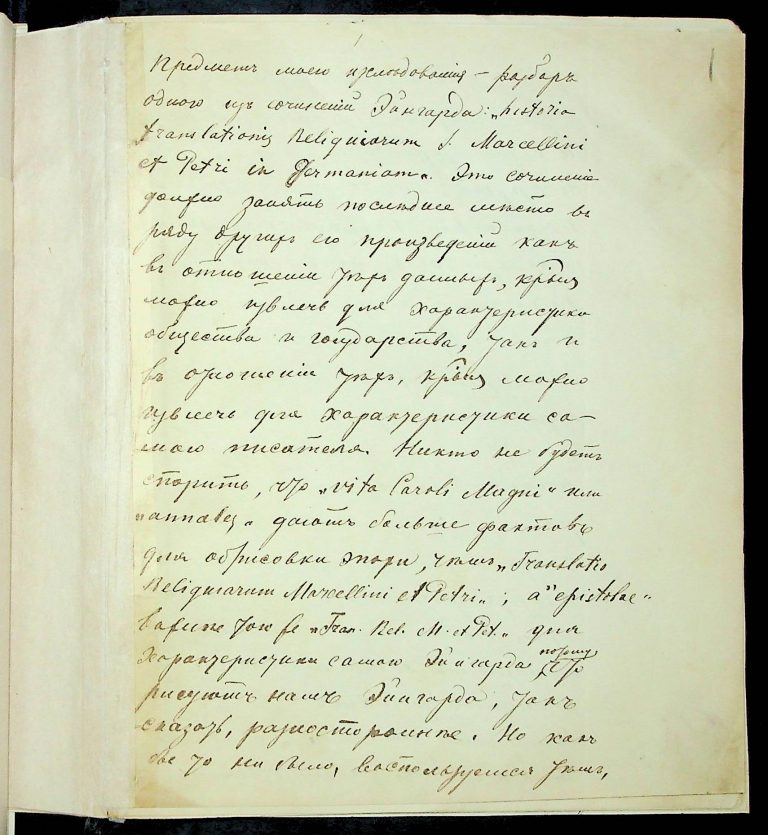 1
Предметъ моего изслѣдованія – разборъ
одного изъ сочиненій Эйнгарда: „historia
translationis Reliquiarum S. Marcellini
et Petri in Germaniam“. Это сочиненіе
должно занять послѣднее мѣсто въ
ряду другихъ его произведеній какъ
въ отношеніи тѣхъ данныхъ, кѣрыя
можно извлечь для характеристики
общества и государства, такъ и
въ отношеніи тѣхъ, кѣрыя можно
извлечь для характеристики са-
мого писателя. Никто не будетъ
спорить, что „vita Caroli Magni“ или
„annales“ даютъ больше фактовъ
для обрисовки эпохи, чѣмъ „Translatio
Reliquiarum Marcellini et Petri“; а „epistolae“
важнѣе той же „Tran. Rel. M. et Pet.“ для
характеристики самого Эйнгарда, потому что
рисуютъ намъ Эйнгарда, такъ
сказать, разностороннѣе. Но какъ
бы то ни было, воспользуемся тѣмъ,